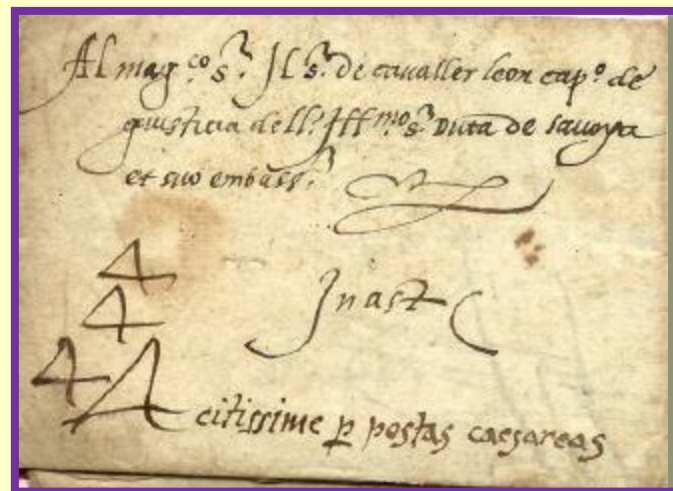 Al mag.co s.r Il s.r de cavaller leon cap.o de
giusticia dell. Ill.mo s.r Duca de savoya
et suo embass.r
In ast
4
4
4 4
citissime p postas caesareas